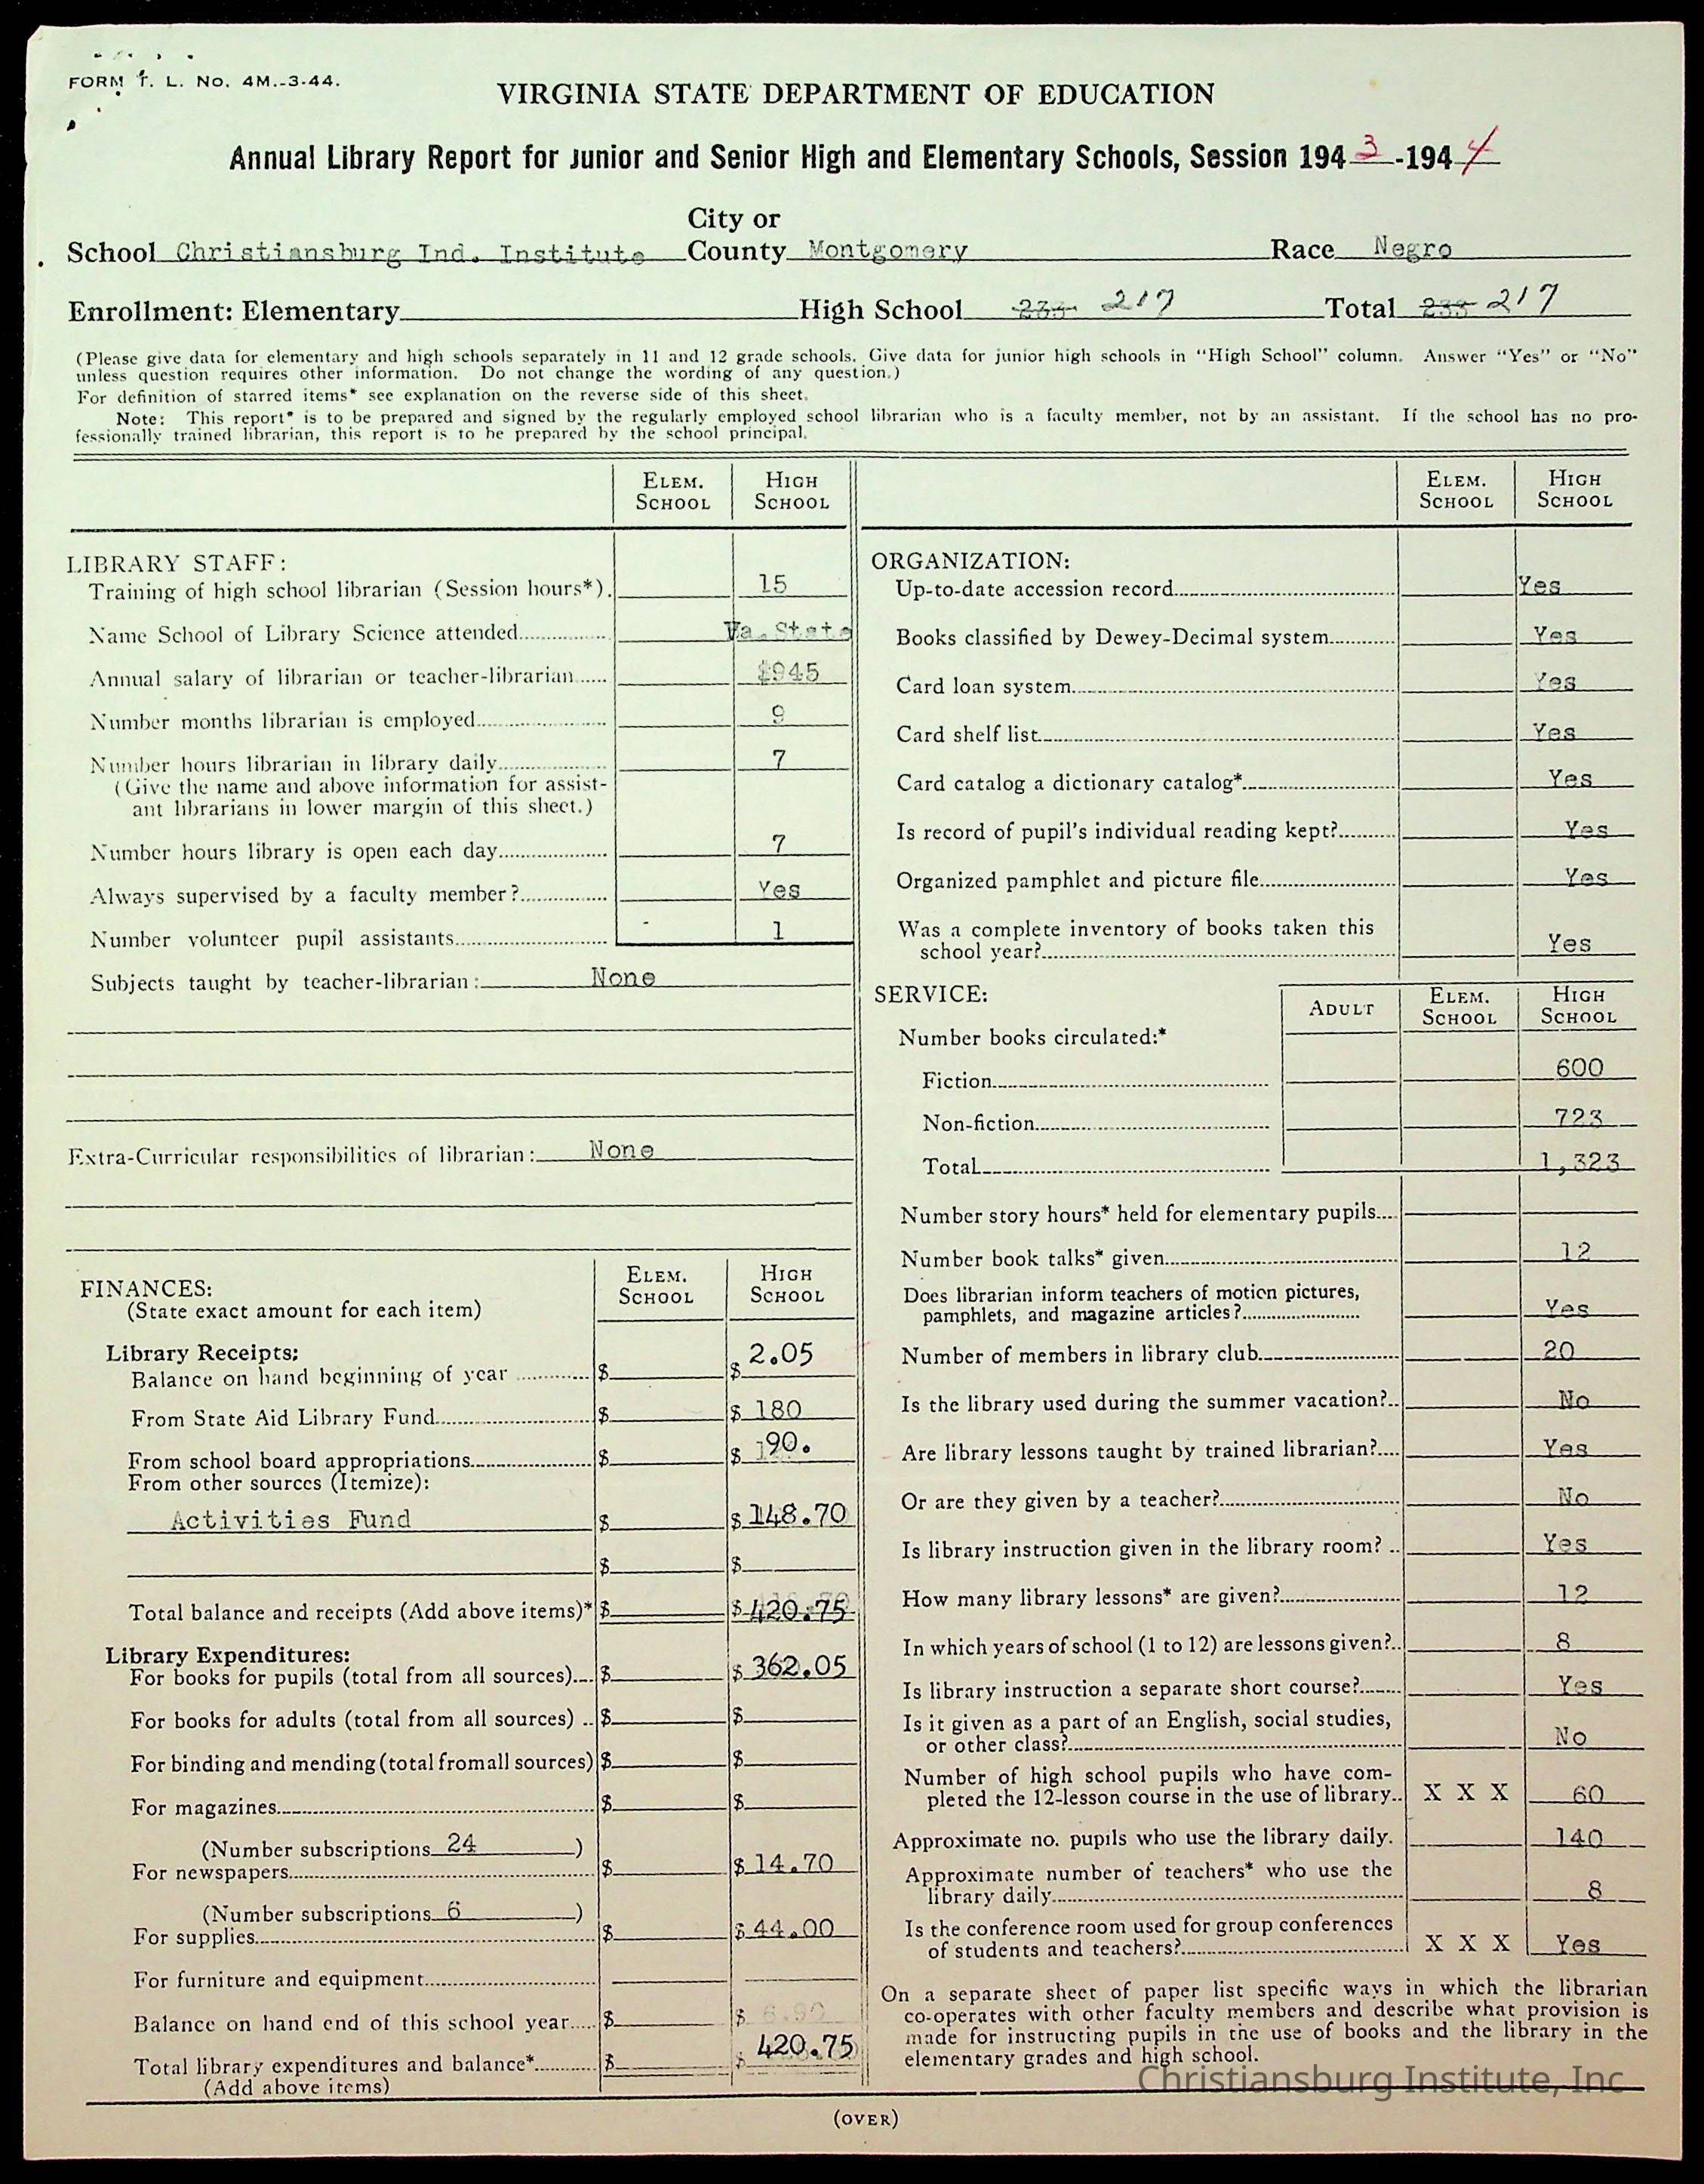 FORM T. L. No. 4M.-3-44.
VIRGINIA STATE DEPARTMENT OF EDUCATION
Annual Library Report for Junior and Senior High and Elementary Schools, Session 1943-1944
City or
School Christiansburg Ind. Institute County Montgomery Race Negro
Enrollment: Elementary High School 217 Total 217
(Please give data for elementary and high schools separately in 11 and 12 grade schools. Give data for junior high schools in “High School” column. Answer “Yes” or “No”
unless question requires other information. Do not change the wording of any question.)
For definition of starred items* see explanation on the reverse side of this sheet.
Note: This report* is to be prepared and signed by the regularly employed school librarian who is a faculty member, not by an assistant. If the school has no pro-
fessionally trained librarian, this report is to be prepared by the school principal.
ELEM. SCHOOL HIGH SCHOOL
LIBRARY STAFF:
Training of high school librarian (Session hours*). 15
Name School of Library Science attended Va. State
Annual salary of librarian or teacher-librarian $945
Number months librarian is employed 9
Number hours librarian in library daily 7
(Give the name and above information for assist-
ant librarians in lower margin of this sheet.)
Number hours library is open each day 7
Always supervised by a faculty member? Yes
Number volunteer pupil assistants - 1
Subjects taught by teacher-librarian: None
Extra-Curricular responsibilities of librarian: None
FINANCES: ELEM. SCHOOL HIGH SCHOOL
(State exact amount for each item)
Library Receipts:
Balance on hand beginning of year $ $ 2.05
From State Aid Library Fund $ $ 180
From school board appropriations $ $ 90.
From other sources (Itemize):
Activities Fund $ $ 148.70
$ $
Total balance and receipts (Add above items)* $ $ 420.75
Library Expenditures:
For books for pupils (total from all sources) $ $ 362.05
For books for adults (total from all sources) $ $
For binding and mending (total from all sources) $ $
For magazines $ $
(Number subscriptions 24 )
For newspapers $ $ 14.70
(Number subscriptions 6 )
For supplies $ $ 44.00
For furniture and equipment
Balance on hand end of this school year $ $
Total library expenditures and balance* $ $ 420.75
(Add above items)
ELEM. SCHOOL HIGH SCHOOL
ORGANIZATION:
Up-to-date accession record Yes
Books classified by Dewey-Decimal system Yes
Card loan system Yes
Card shelf list Yes
Card catalog a dictionary catalog* Yes
Is record of pupil's individual reading kept? Yes
Organized pamphlet and picture file Yes
Was a complete inventory of books taken this
school year? Yes
SERVICE: ADULT ELEM. SCHOOL HIGH SCHOOL
Number books circulated:*
Fiction 600
Non-fiction 723
Total 1,323
Number story hours* held for elementary pupils
Number book talks* given 12
Does librarian inform teachers of motion pictures,
pamphlets, and magazine articles? Yes
Number of members in library club 20
Is the library used during the summer vacation? No
Are library lessons taught by trained librarian? Yes
Or are they given by a teacher? No
Is library instruction given in the library room? Yes
How many library lessons* are given? 12
In which years of school (1 to 12) are lessons given? 8
Is library instruction a separate short course? Yes
Is it given as a part of an English, social studies,
or other class? No
Number of high school pupils who have com-
pleted the 12-lesson course in the use of library X X X 60
Approximate no. pupils who use the library daily. 140
Approximate number of teachers* who use the
library daily 8
Is the conference room used for group conferences
of students and teachers? X X X Yes
On a separate sheet of paper list specific ways in which the librarian
co-operates with other faculty members and describe what provision is
made for instructing pupils in the use of books and the library in the
elementary grades and high school.
Christiansburg Institute, Inc
(OVER)